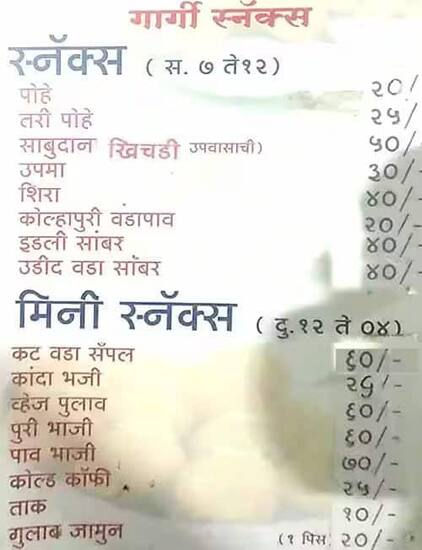 गार्गी स्नॅक्स
स्नॅक्स ( स. ७ ते१२)
पोहे २०/-
तरी पोहे २५/-
साबुदान खिचडी उपवासाची) ५०/-
उपमा ३०/-
शिरा ४०/-
कोल्हापुरी वडापाव २०/-
इडली सांबर ४०/-
उडीद वडा सांबर ४०/-
मिनी स्नॅक्स ( दु.१२ ते ०४)
कट वडा सँपल ६०/-
कांदा भजी २५/-
व्हेज पुलाव ६०/-
पुरी भाजी ६०/-
पाव भाजी ७०/-
कोल्ड कॉफी २५/-
ताक १०/-
गुलाब जामुन (१ पिस २०/-